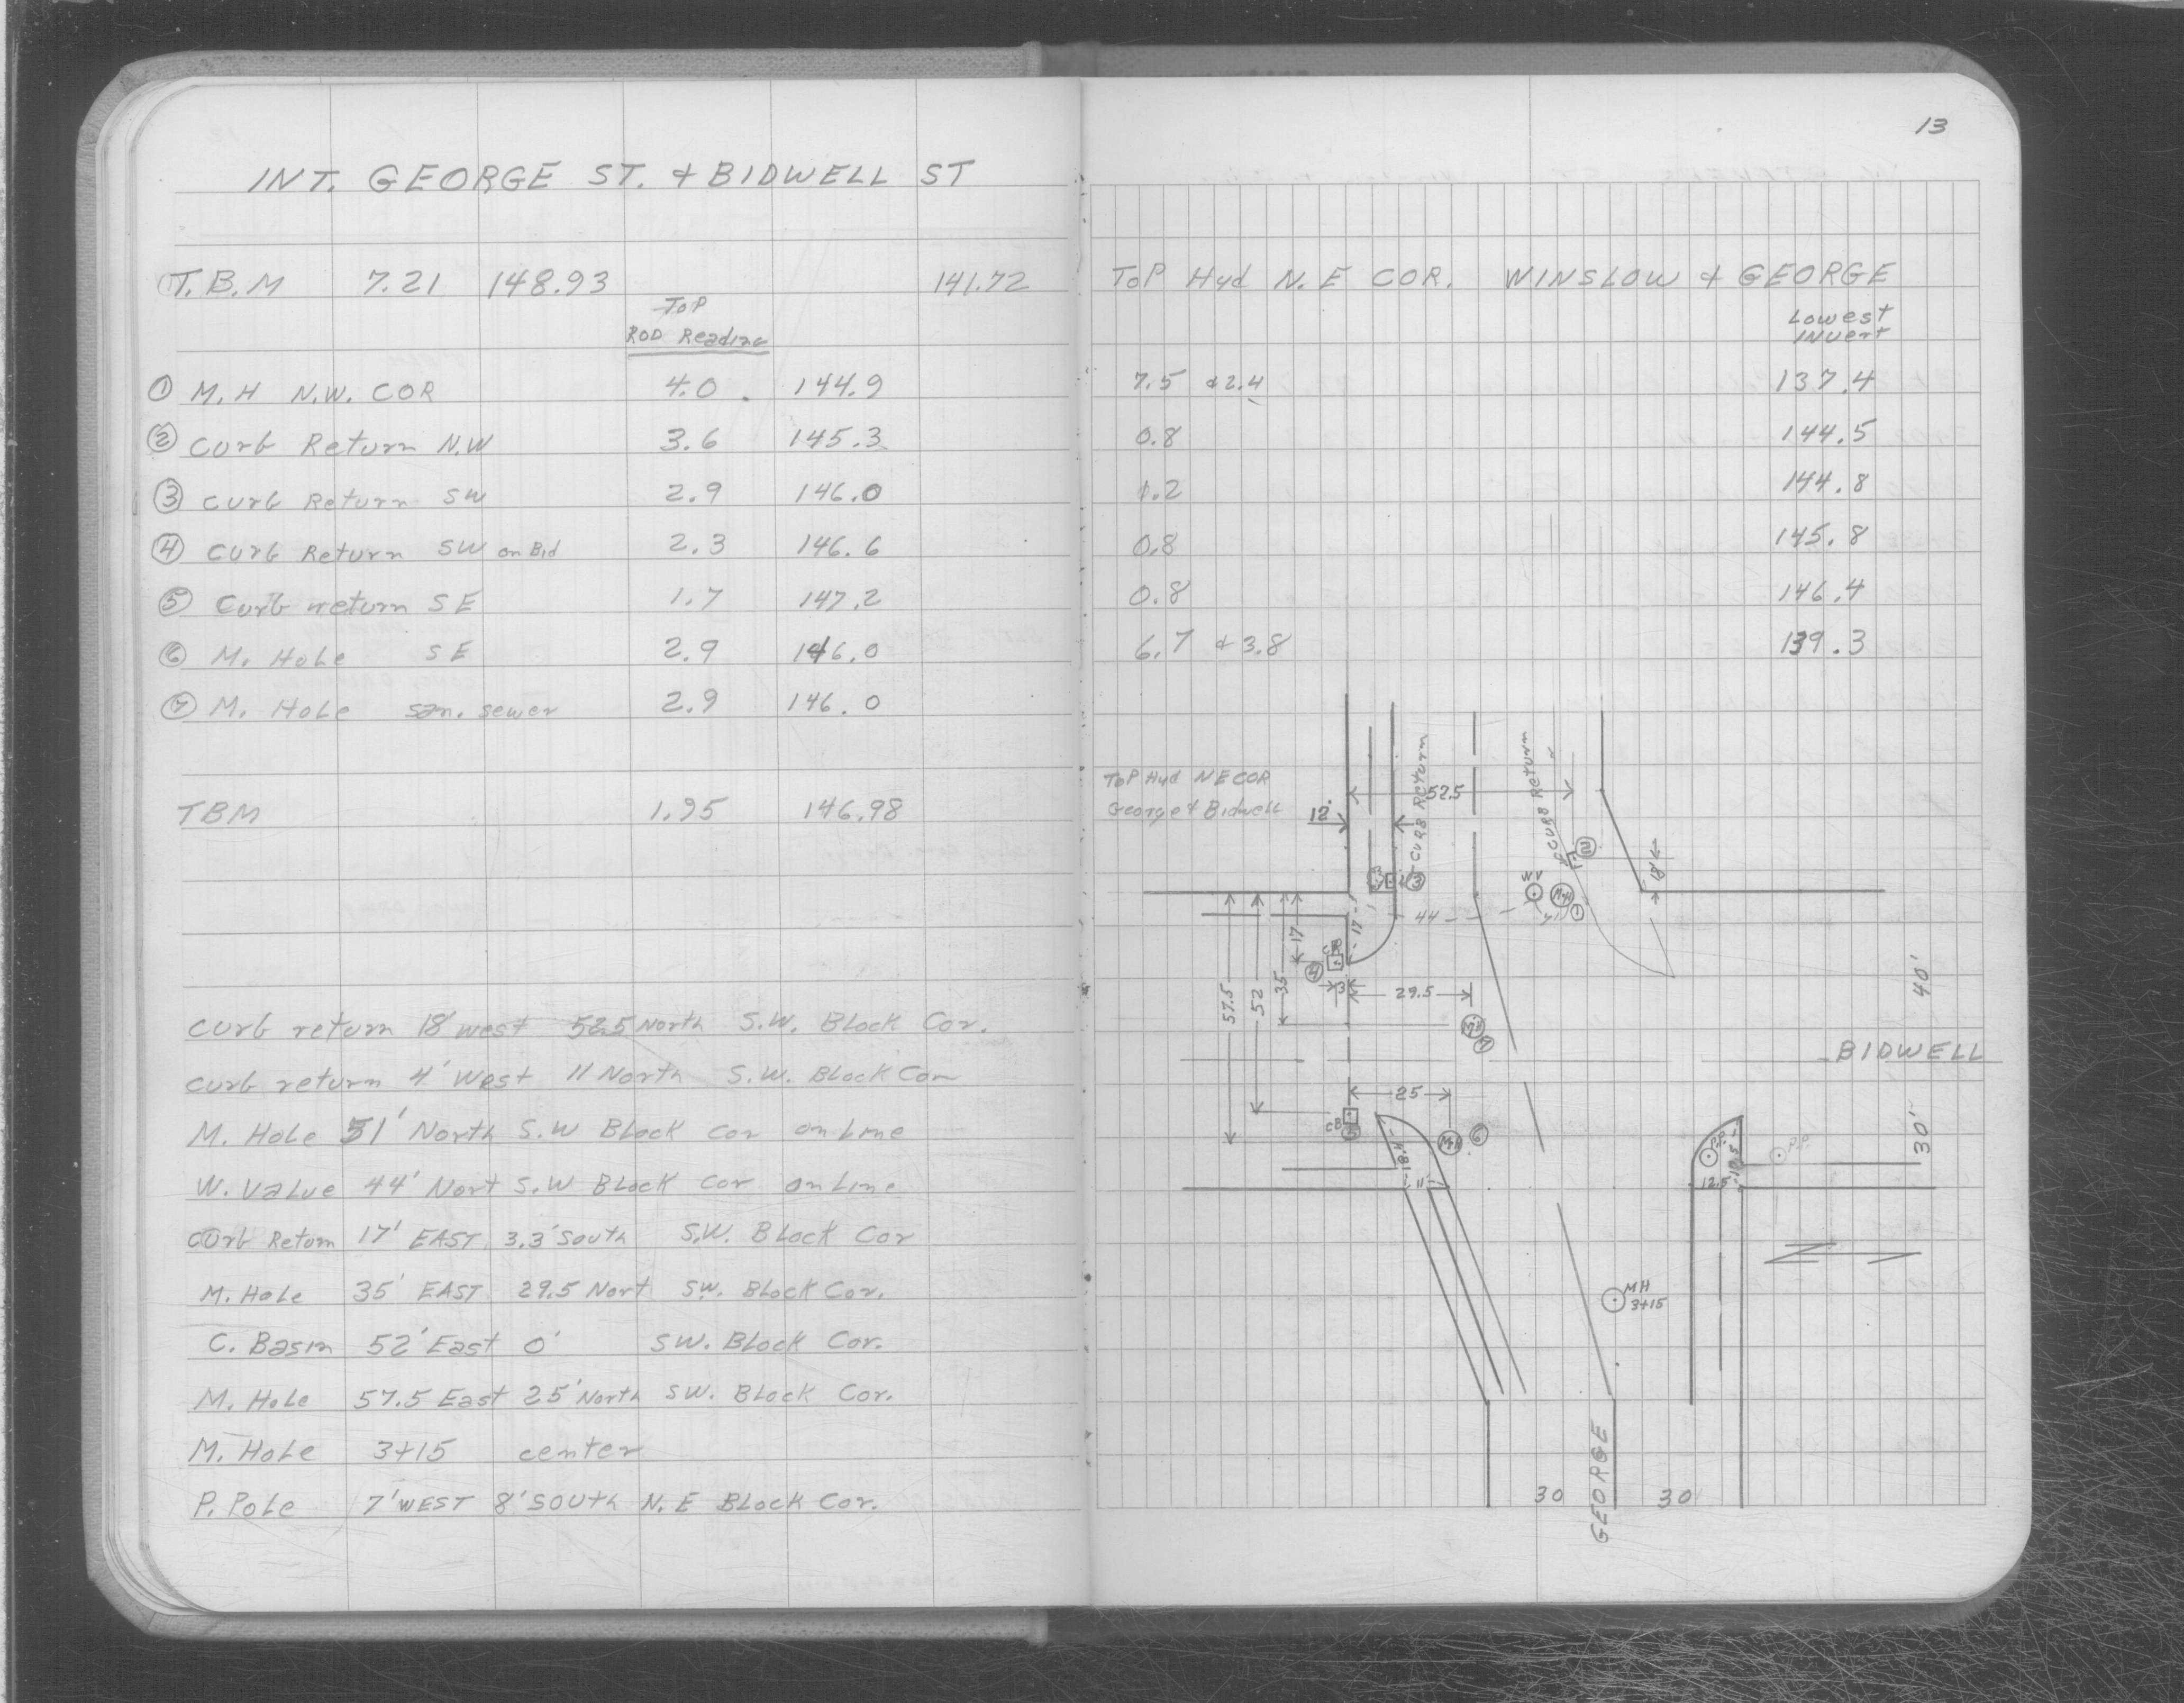 INT. GEORGE ST. & BIDWELL ST
T.B.M 7.21 148.93 141.72
TOP
ROD Reading
① M.H N.W. COR 4.0 144.9
② Curb Return N.W 3.6 145.3
③ Curb Return SW 2.9 146.0
④ Curb Return SW on Bid 2.3 146.6
⑤ Curb return SE 1.7 147.2
⑥ M. Hole SE 2.9 146.0
⑦ M. Hole san. sewer 2.9 146.0
TBM 1.95 146.98
Curb return 18' west 52.5 North S.W. Block Cor.
Curb return 4' West 11 North S.W. Block Cor
M. Hole 51' North S.W Block Cor on Line
W. Value 44' Nort S.W Block Cor on Line
Curb Return 17' EAST 3.3' South S.W. Block Cor
M. Hole 35' EAST 29.5 Nort SW. Block Cor.
C. Basin 52' East 0' SW. Block Cor.
M. Hole 57.5 East 25' North SW. Block Cor.
M. Hole 3+15 center
P. Pole 7' WEST 8' SOUTH N.E Block Cor.
13
TOP Hyd N.E COR. WINSLOW & GEORGE
Lowest
INVert
7.5 & 2.4 137.4
0.8 144.5
1.2 144.8
0.8 145.8
0.8 146.4
6.7 & 3.8 139.3
TOP Hyd NE COR
George & Bidwell
CURB Return
CURB Return
52.5
12'
②
18'
③
WV
MH
①
44
17
17
CB
④
3
35
52
57.5
29.5
MH
⑦
40'
BIDWELL
25
CB
⑤
MH
⑥
18.4
11
P.P.
18.5
12.5
P.P.
30'
MH
3+15
GEORGE
30
30